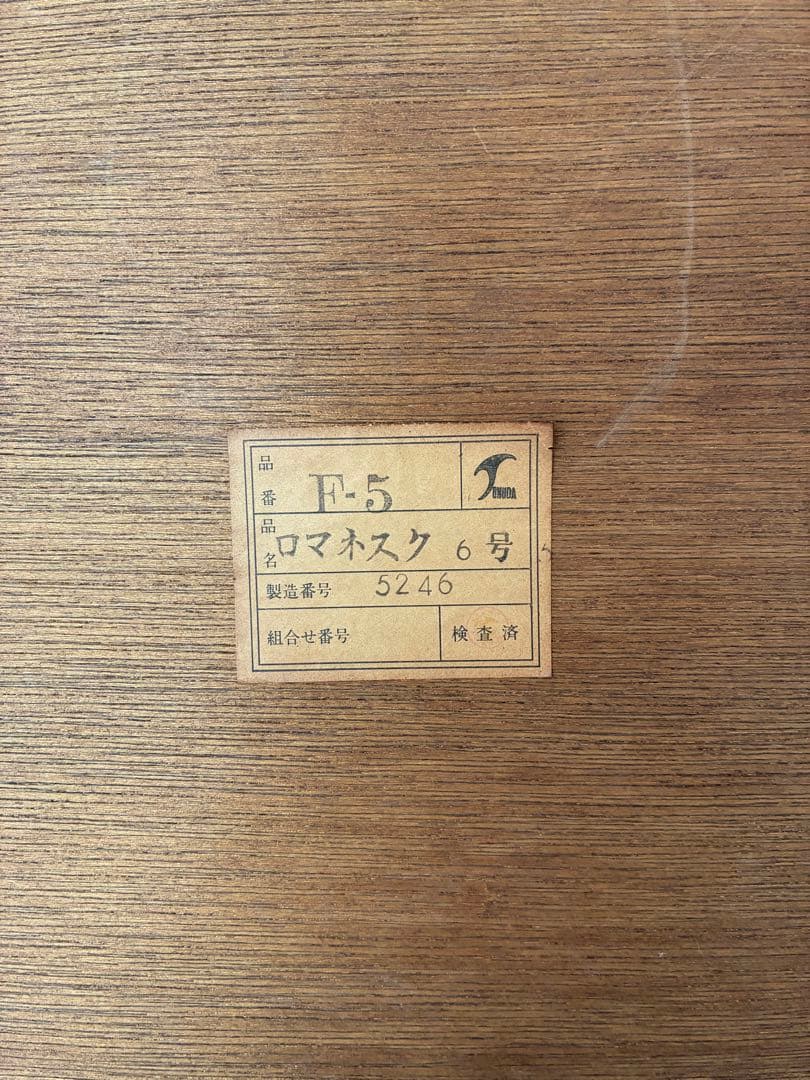 品番 F-5
TOKUDA
品名 ロマネスク 6号
製造番号 5246
組合せ番号
検査済